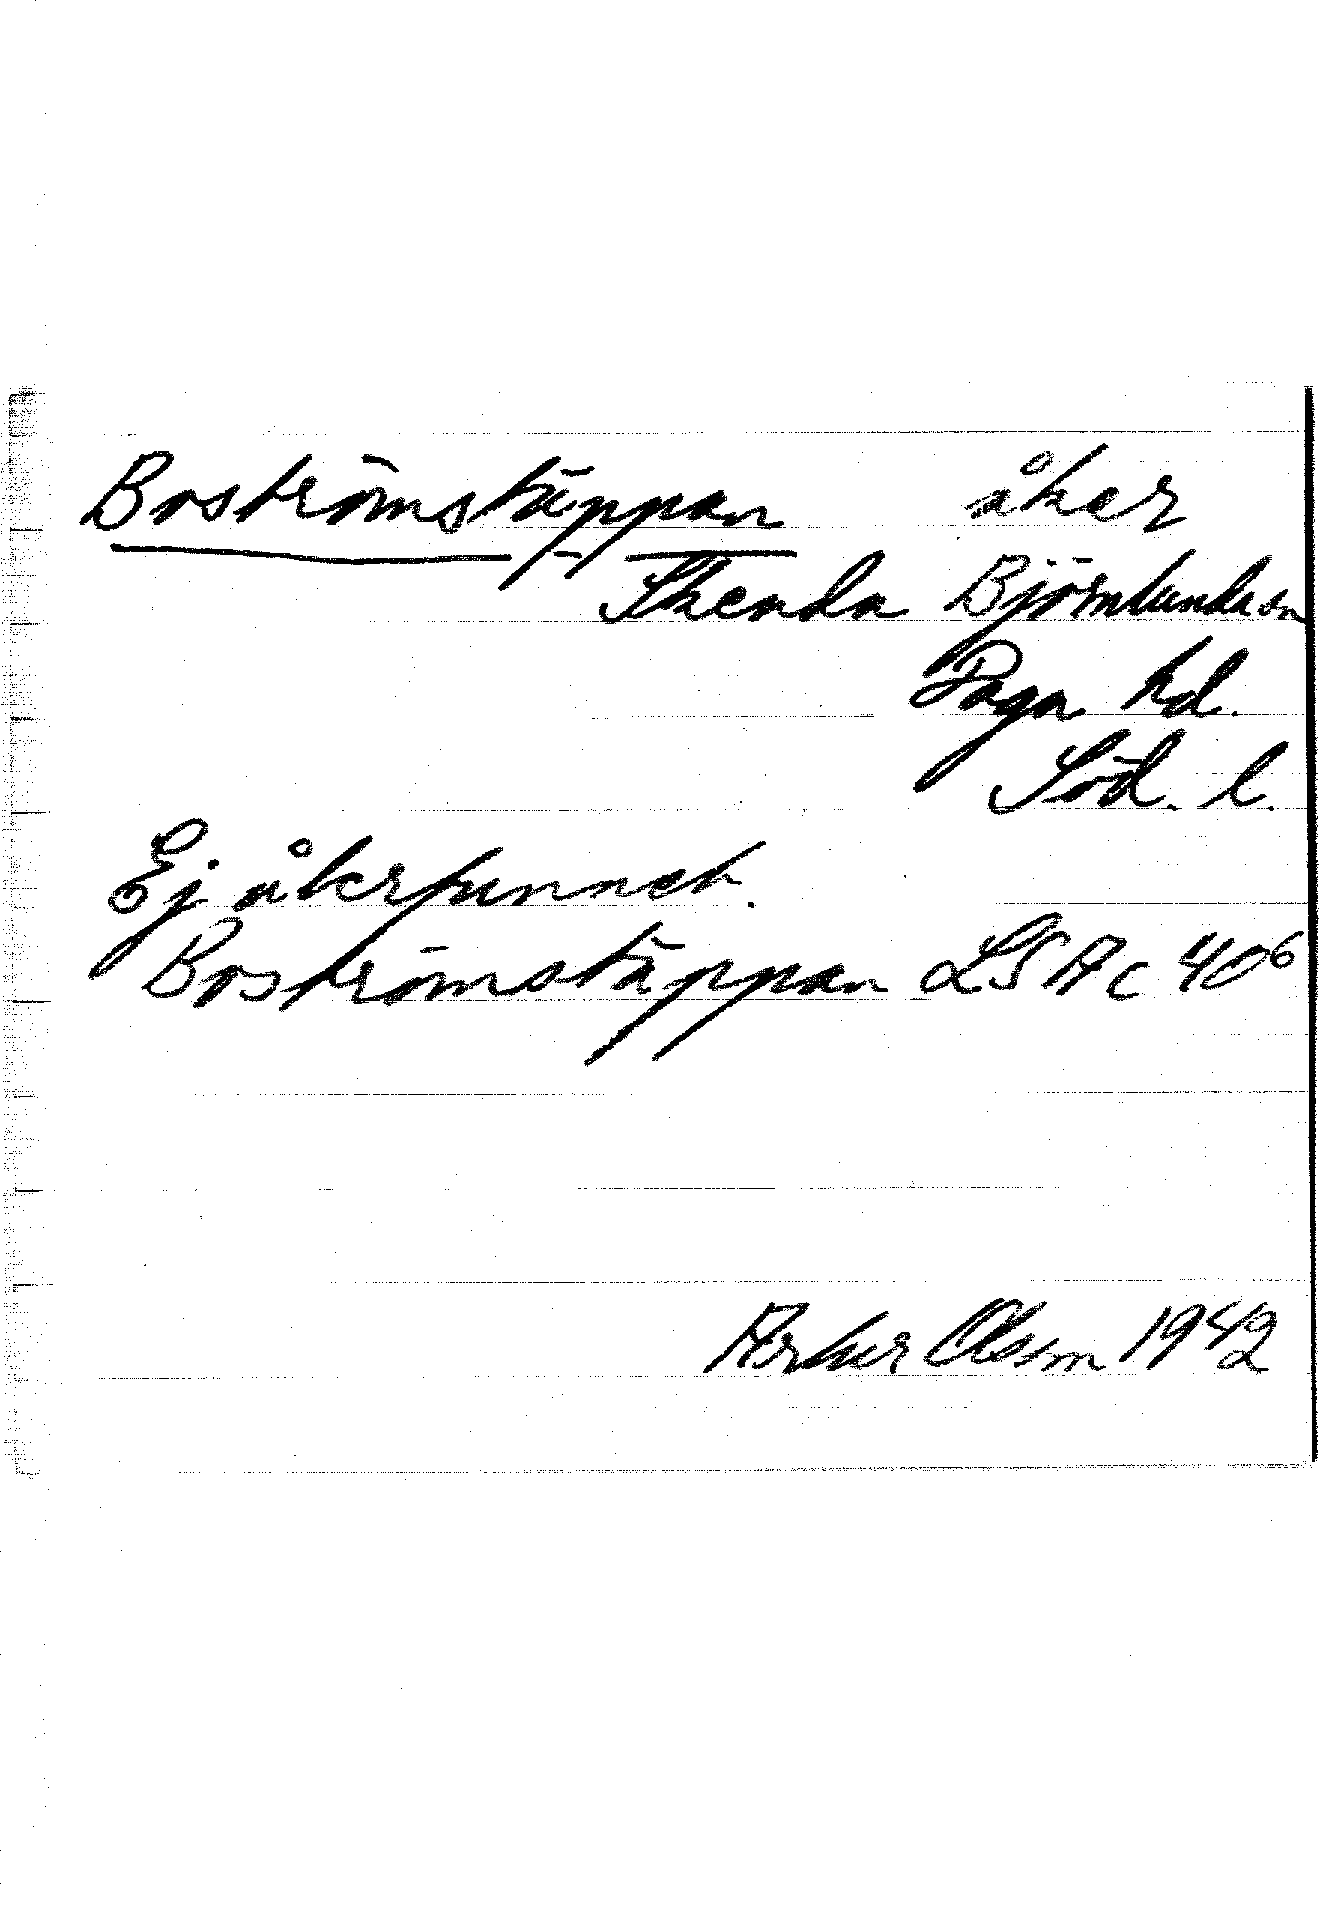 Boströmstäppan åker
Skenda Björnlunda sn
Daga hd.
Söd. l.
Ej återfunnet.
Boströmstäppan LSA C 40⁶
Artur Olsson 1942